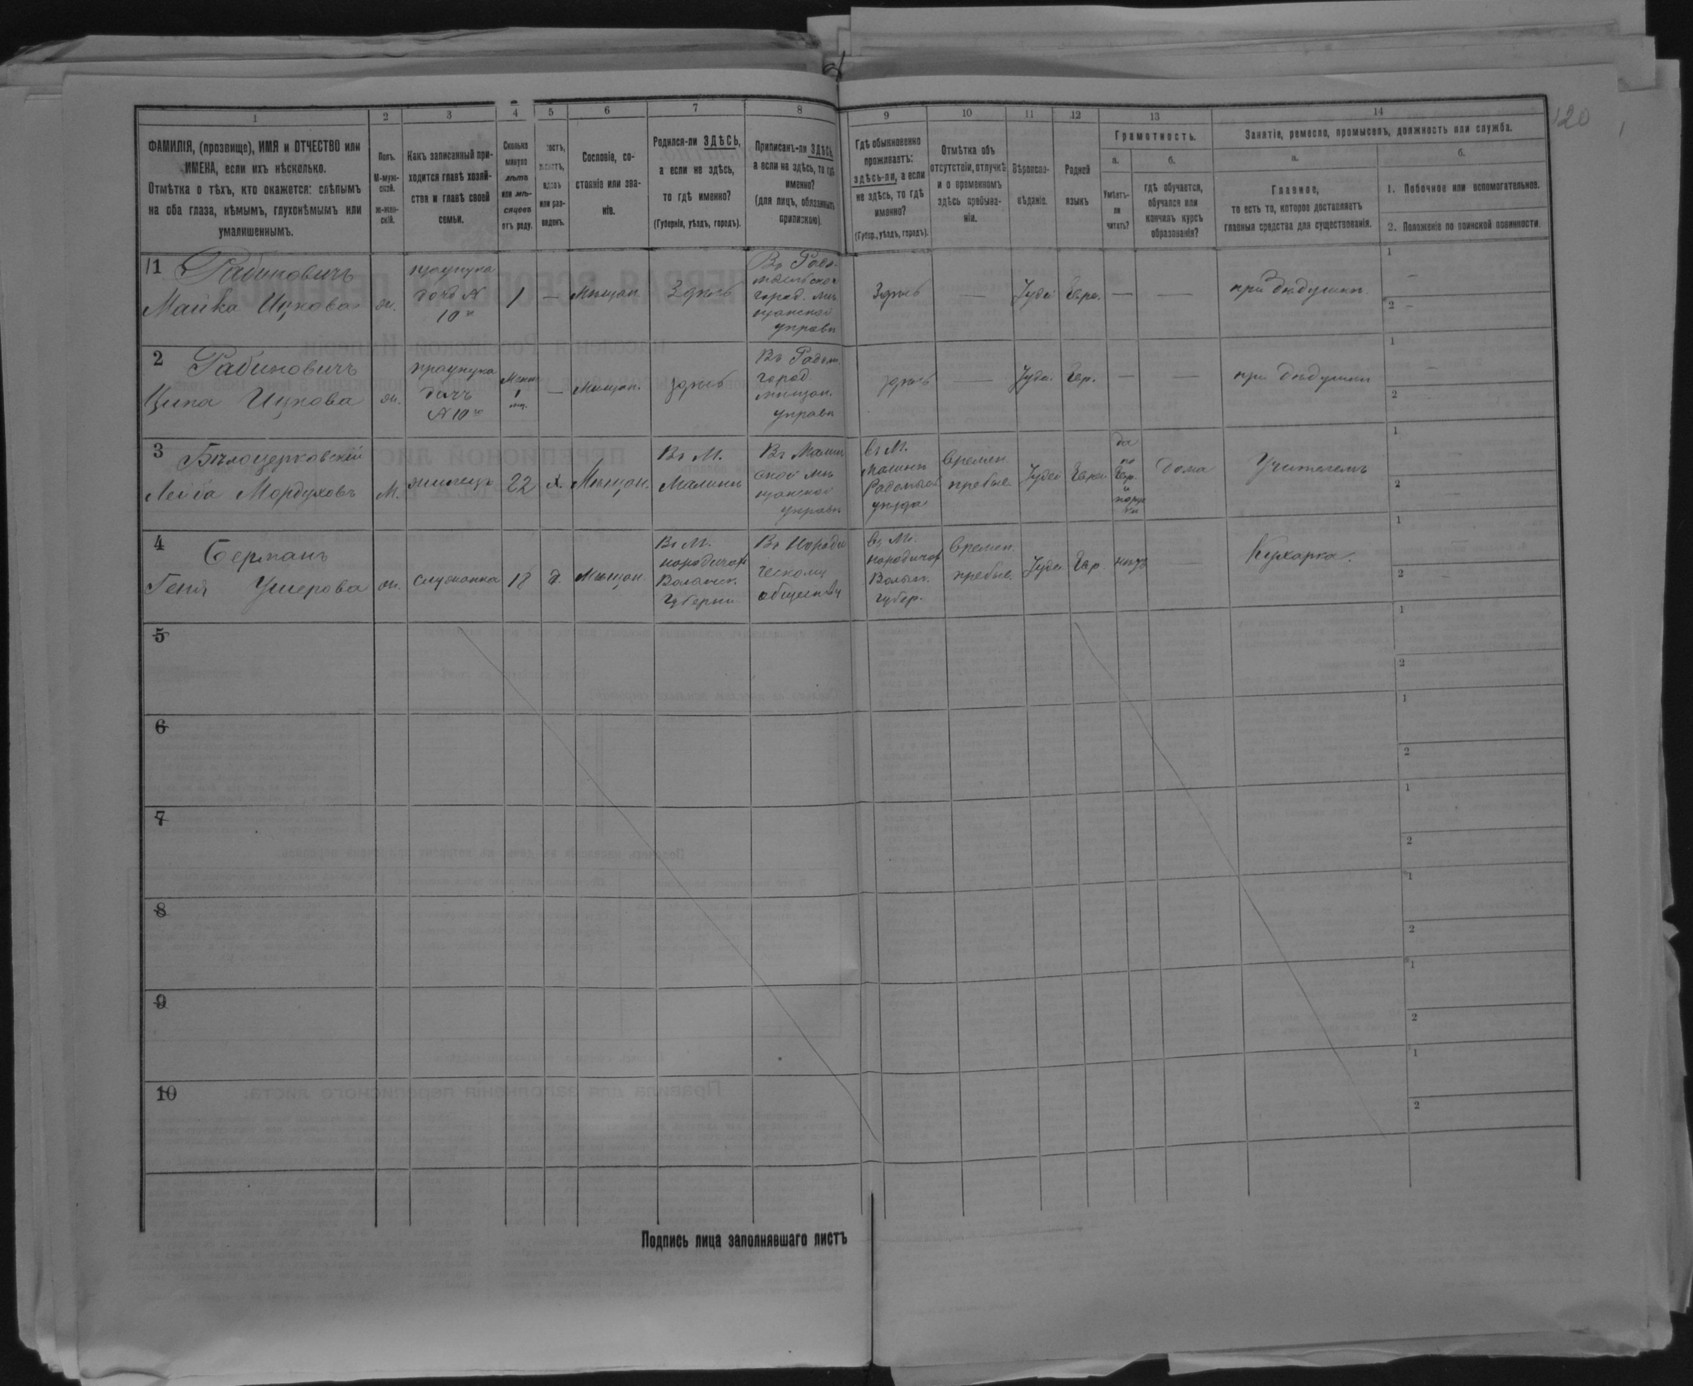 120
1 2 3 4 5 6 7 8 9 10 11 12 13 14
ФАМИЛІЯ, (прозвище), ИМЯ и ОТЧЕСТВО или
ИМЕНА, если ихъ нѣсколько.
Отмѣтка о тѣхъ, кто окажется: слѣпымъ
на оба глаза, нѣмымъ, глухонѣмымъ или
умалишеннымъ.
Полъ.
М-муж-
ской.
ж-жен-
скій.
Какъ записанный при-
ходится главѣ хозяй-
ства и главѣ своей
семьи.
Сколько
минуло
лѣтъ
или мѣ-
сяцевъ
отъ роду.
или раз-
веденъ.
Сословіе, со-
стояніе или зва-
ніе.
Родился-ли ЗДѢСЬ,
а если не здѣсь,
то гдѣ именно?
(Губернія, уѣздъ, городъ).
Приписанъ-ли ЗДѢСЬ,
а если не здѣсь, то гдѣ
именно?
(для лицъ, обязанныхъ
припискою).
Гдѣ обыкновенно
проживаетъ:
здѣсь-ли, а если
не здѣсь, то гдѣ
именно?
(Губер., уѣздъ, городъ).
Отмѣтка объ
отсутствіи, отлучкѣ
и о временномъ
здѣсь пребыва-
ніи.
Вѣроиспо-
вѣданіе.
Родной
языкъ
Грамотность.
а.
Умѣетъ-
ли
читать?
б.
гдѣ обучается,
обучался или
кончилъ курсъ
образованія?
Занятіе, ремесло, промыселъ, должность или служба.
а.
Главное,
то есть то, которое доставляетъ
главныя средства для существованія.
б.
1. Побочное или вспомогательное.
2. Положеніе по воинской повинности.
1 Рабиновичъ
Майка Ицкова
ж.
правнука
дочь №
10й
1
—
Мѣщан.
Здѣсь
город. мѣ
щанской
управы
Здѣсь
—
Іудей
Евре.
—
—
при дѣдушки.
1 —
2 —
2 Рабиновичъ
Ципа Ицкова
ж.
правнука
дочь
№ 10й
1
—
Мѣщан.
здѣсь
Въ Радом.
город
мѣщан.
управы
здѣсь
—
Іуде.
Евр.
—
—
при дѣдушки
1 —
2
3 Бѣлоцерковскій
Лейба Мордуховъ
М.
жилецъ
22
х.
Мѣщан.
Въ М.
Малинѣ
Въ Малин
ской мѣ
щанской
управы
въ М.
Малинѣ
Радомысл
уѣзда
Времен.
пребыв.
Іудей
Еврей
да
по
Евр.
и
по рус
ки
Дома
Учителемъ
1
2
4 Берманъ
Геня Ушерова
ж.
служанка
18
д.
Мѣщан
Въ М.
Народичахъ
Волынск.
Губерни
Въ Народи
ческому
обществу
въ М.
Народичах
Волын.
Губер.
Времен.
пребыв.
Іудей
Евр.
нѣтъ
—
Кухарка.
1
2 —
5
1
2
6
1
2
7
1
2
8
1
2
9
1
2
10
1
2
Подпись лица заполнявшаго листъ